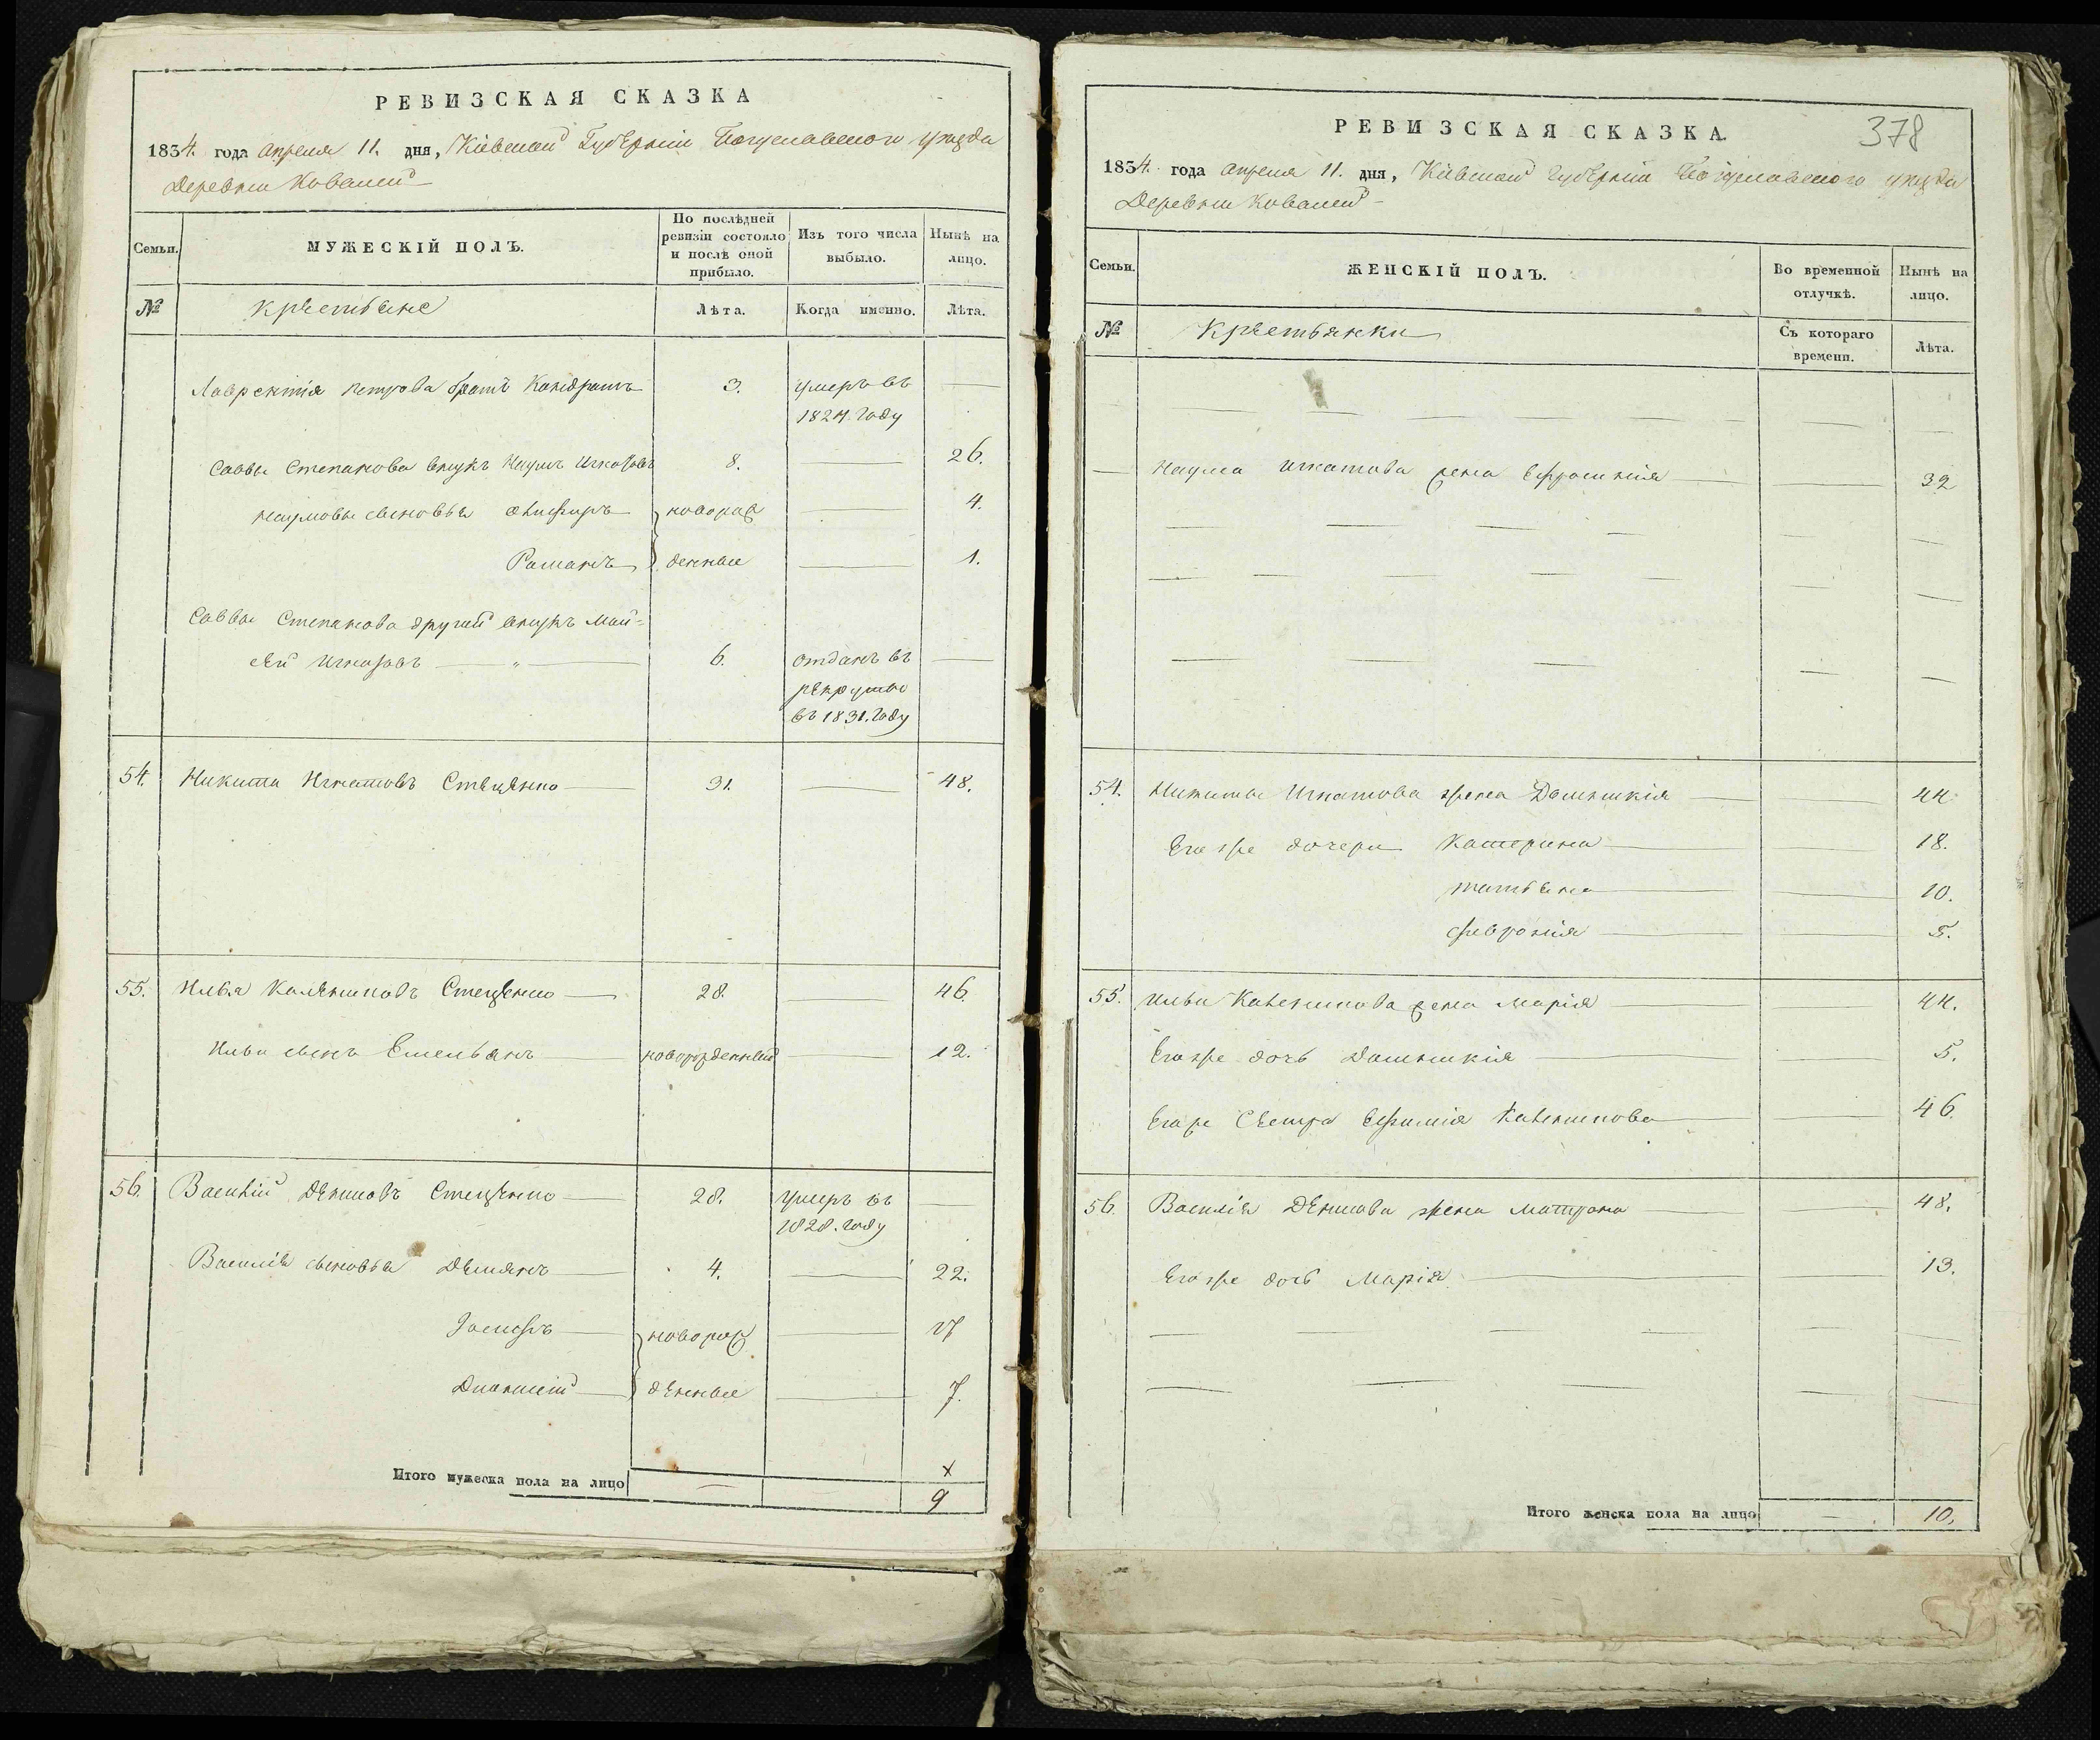 РЕВИЗСКАЯ СКАЗКА
1834. года апреля 11. дня, Кіевской Губерніи Богуславского уезда
Деревни Ковалей
Семьи.
МУЖЕСКІЙ ПОЛЪ.
По послѣдней ревизіи состояло и послѣ оной прибыло.
Изъ того числа выбыло.
Нынѣ на лицо.
№
крестьяне
Лѣта.
Когда именно.
Лѣта.
Лаврентія петрова братъ Кондратъ 3. умеръ въ
1824. году
Саввы Степанова внукъ Наумъ Игнатовъ 8. 26.
наумовы сыновья 4.
новорож
Романъ денные 1.
Саввы Степанова другий внукъ Мои=
сей Игнатовъ „ 6. отданъ въ
рекруты
въ 1831. году
54. Никита Игнатовъ Стеценко 31. 48.
55. Илья Калениковъ Стеценко 28. 46.
Ильи сынъ Емельянъ новорожденный 12.
56. Василій Денисовъ Стеценко 28. умеръ въ
1828. году
Василія сыновья Демянъ 4. 22.
Іосифъ новорож 17
Дионисій денные 7.
х
Итого мужеска пола на лицо 9
378
РЕВИЗСКАЯ СКАЗКА.
1834. года апреля 11. дня, Кіевской Губерніи Богуславского уезда
Деревни Ковалей
Семьи.
ЖЕНСКІЙ ПОЛЪ.
Во временной отлучкѣ.
Нынѣ на лицо.
№
Крестьянки
Съ котораго времени.
Лѣта.
Наума Игнатова жена Ефросинія 32
54. Никиты Игнатова жена Домникія 44
Его же дочери Катерина 18.
татьяна 10.
февронія 5.
55. Ильи Каленикова жена Марія 44.
Его же дочь Домникія 5.
Его же Сестра Ефимія Каленикова 46.
56. Василія Денисова жена Матрона 48.
Его же дочь Марія 13.
Итого женска пола на лицо 10.